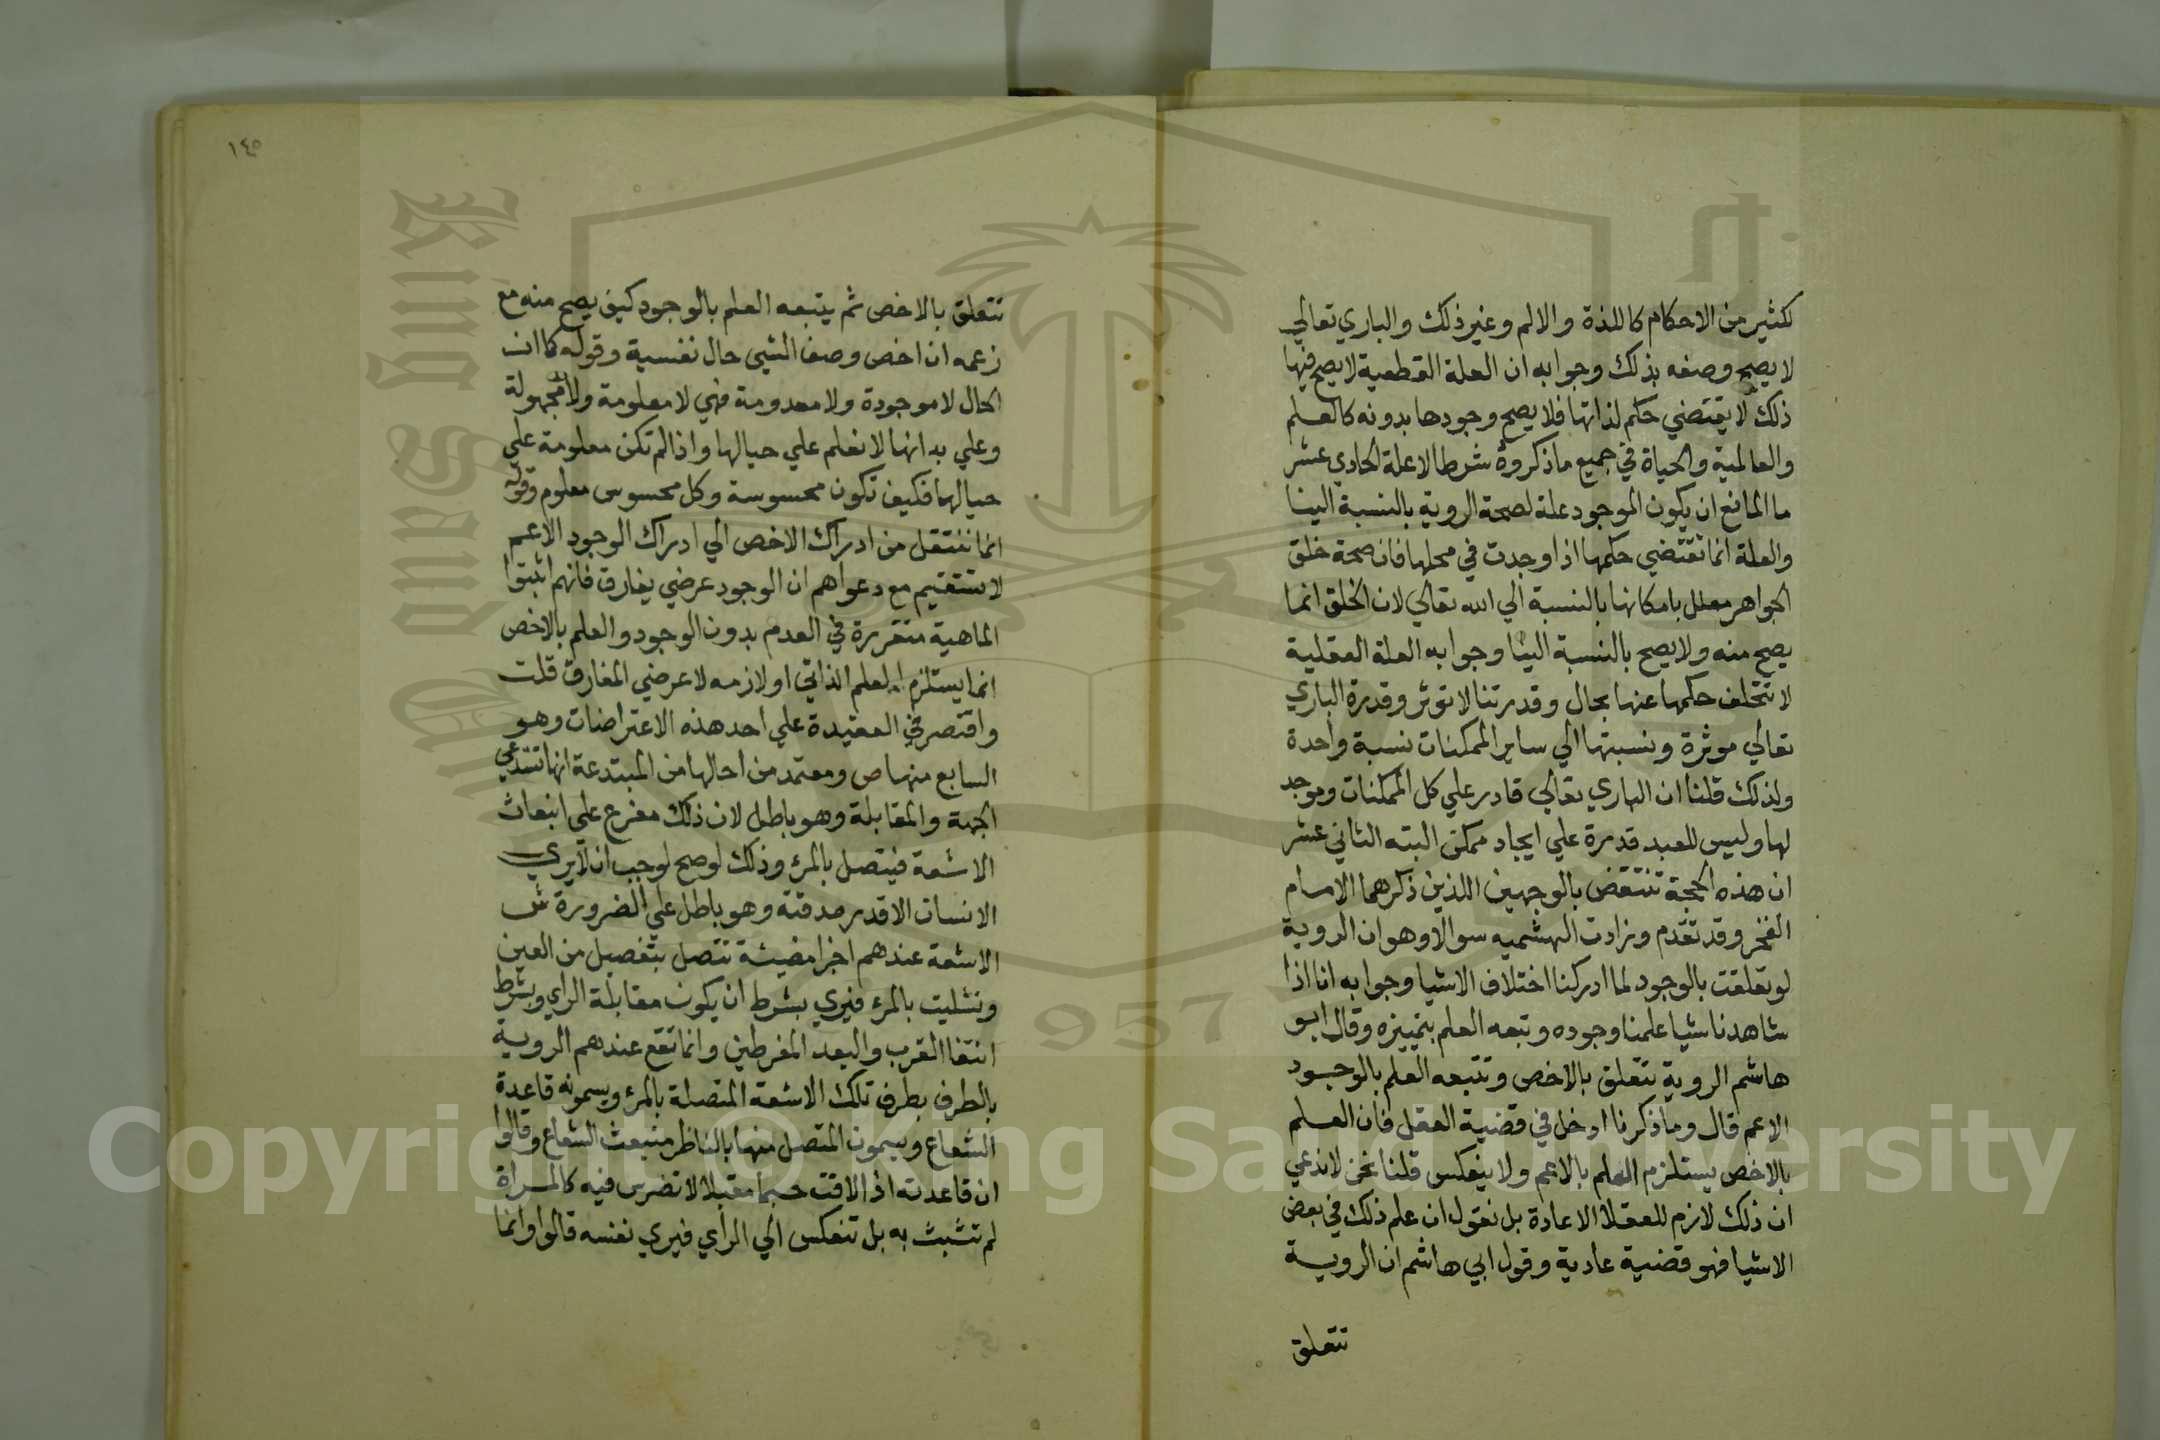 لكثير من الاحكام كاللذة والالم وغير ذلك والباري تعالي
لا يصح وصفه بذلك وجوابه ان العلة القطعية لا يصح فيها
ذلك لا يقتضي حكم لذاتها فلا يصح وجودها بدونه كالعلم
والعالمية والحياة في جميع ما ذكروه شرطا لا علة الحادي عشر
ما المانع ان يكون الموجود علة لصحة الروية بالنسبة الينا
والعلة انما تقتضي حكمها اذا وجدت في محلها فان صحة خلق
الجواهر معلل بامكانها بالنسبة الي الله تعالي لان الخلق انما
يصح منه ولا يصح بالنسبة الينا وجوابه العلة العقلية
لا تتخلف حكمها عنها بحال وقدرتنا لا توثر وقدرة الباري
تعالي موثرة ونسبتها الي ساير الممكنات نسبة واحدة
ولذلك قلنا ان الباري تعالي قادر علي كل الممكنات وموجد
لها وليس للعبد قدرة علي ايجاد ممكن البته الثاني عشر
ان هذه الحجة تنتقض بالوجهين اللذين ذكرهما الامام
الفخر وقد تقدم وزادت البهشميه سوالا وهو ان الروية
لو تعلقت بالوجود لما ادركنا اختلاف الاشيا وجوابه انا اذا
شاهدنا شيا علمنا وجوده وتبعه العلم بتمييزه وقال ابو
هاشم الروية تتعلق بالاخص وتتبعه العلم بالوجود
الاعم قال وما ذكرنا ادخل في قضية العقل فان العلم
بالاخص يستلزم العلم بالاعم ولا ينعكس قلنا نحن لا ندعي
ان ذلك لازم للعقلا الا عادة بل نقول ان علم ذلك في بعض
الاشيا فهو قضية عادية وقول ابي هاشم ان الروية
تتعلق
١٤٥
تتعلق بالاخص ثم يتبعه العلم بالوجود كيف يصح منه مع
زعمه ان اخص وصف الشي حال نفسية وقوله كما ان
الحال لا موجودة ولا معدومة فهي لا معلومة ولا مجهولة
وعلي بد انها لا نعلم علي حيالها واذا لم تكن معلومة علي
حيالها فكيف تكون محسوسة وكل محسوس معلوم وقوله
انما ننتقل من ادراك الاخص الي ادراك الوجود الاعم
لا تستقيم مع دعواهم ان الوجود عرضي يفارق فانهم اثبتوا
الماهية متقررة في العدم بدون الوجود والعلم بالاخص
انما يستلزم العلم الذاتي او لازمه لا عرضي المفارق قلت
واقتصر في العقيدة علي احد هذه الاعتراضات وهو
السابع منها ص ومعتمد من احالها من المبتدعة انها تستدعي
الجهة والمقابلة وهو باطل لان ذلك مفرع علي انبعاث
الاشعة فيتصل بالمرء وذلك لو صح لوجب ان لا يري
الانسان الا قدر حدقته وهو باطل علي الضرورة ش
الاشعة عندهم اجزا مضيئة تتصل بتفصيل من العين
وتشبث بالمرء فيري بشرط ان يكون مقابلة الراي وبشرط
انتفا القرب والبعد المفرطين وانما تقع عندهم الروية
بالطرف بطرف تلك الاشعة المتصلة بالمرء ويسمونه قاعدة
الشعاع ويسمون المتصل منها بالناظر منبعث الشعاع وقالوا
ان قاعدته اذا لاقت جسما مقبلا لا تضرس فيه كالمراة
لم تتشبث به بل تنعكس الي الراي فيري نفسه قالوا وانما
Copyright © King Saud University
King Saud University
957